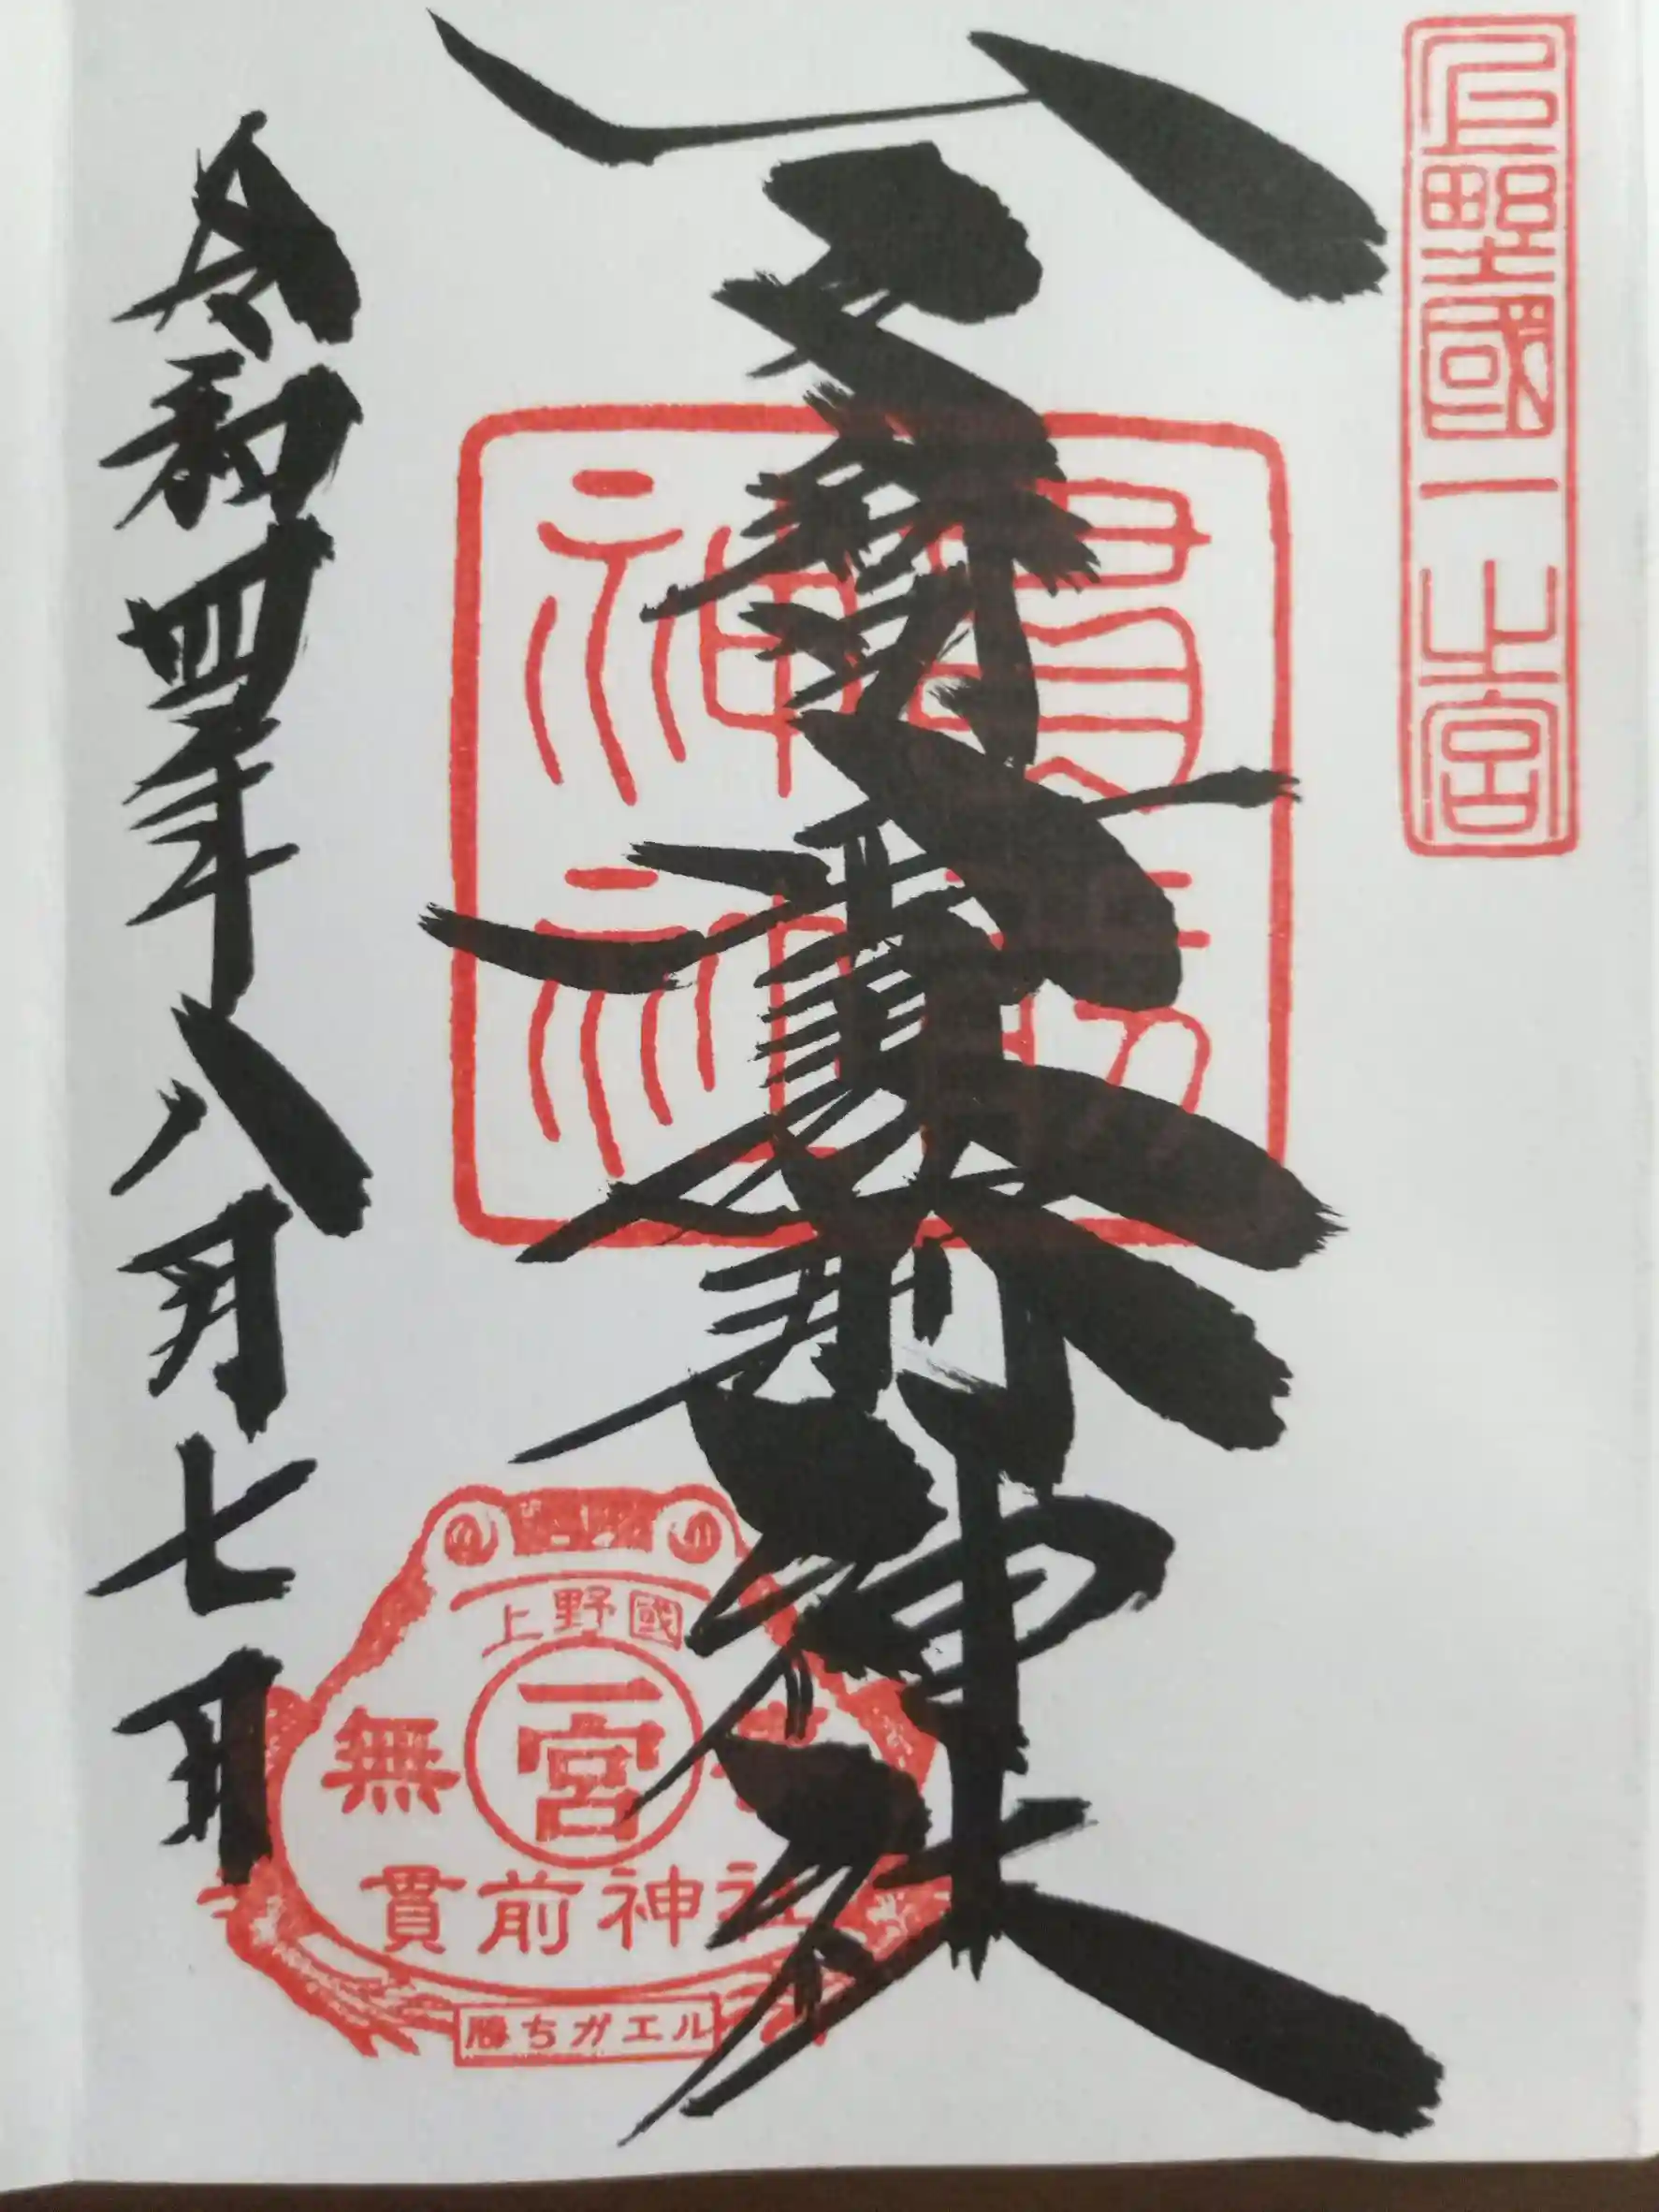 上野國一之宮
一之宮貫前神社
貫前神社
令和四年八月七日
上野國
一宮
無事
貫前神社
勝ちガエル